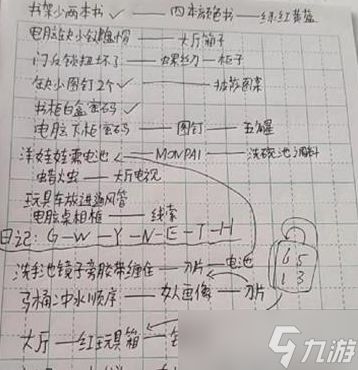 书架少两本书 ✓ — 四本颜色书 — 绿红黄蓝
电脑缺少键盘帽 — 大厅箱子
门反锁扭坏了 — 螺丝刀 — 柜子
缺少图钉2个 ✓ — 披萨图案
书柜白盒密码 ✓
电脑下柜密码 — 图钉 — 五角星
洋娃娃需电池 — MONPAI — 洗碗池调料
萤火虫 — 大厅电视
玩具车放进通风管
电脑桌相框 — 线索
日记: G-W-Y-N-E-T-H
洗手池镜子旁胶带缠住 — 刀片 — 电池
6 5
1 3
马桶二中水顺序 — 女人画像 — 刀片
大厅 — 红玩具箱
九游